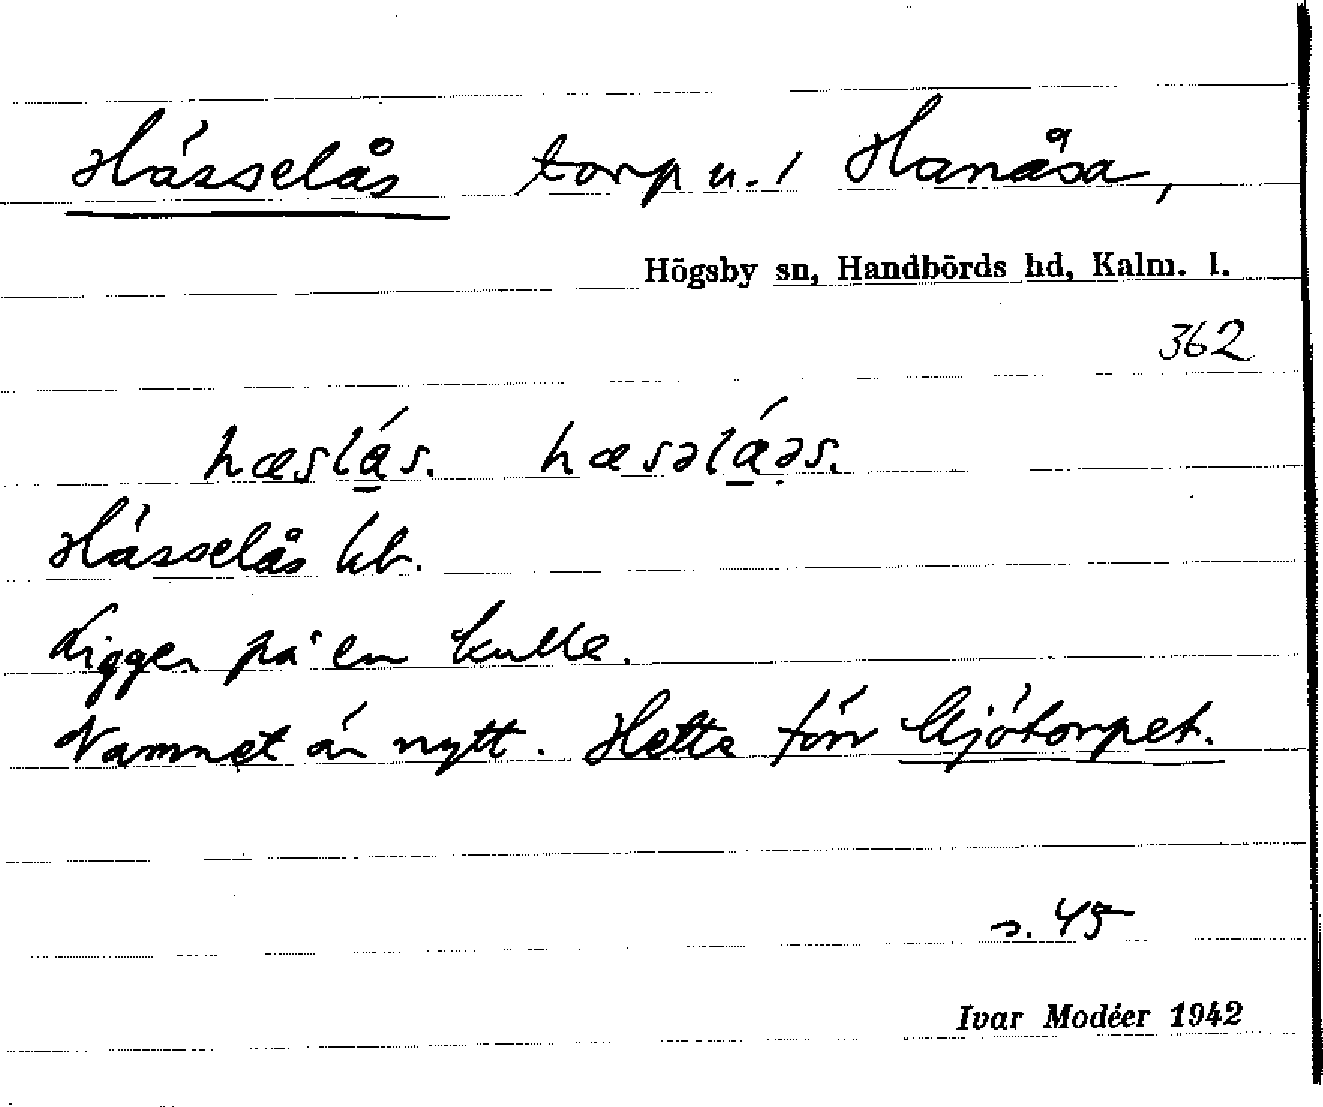 Hässelås torp u. / Hanåsa,
Högsby sn, Handbörds hd, Kalm. l.
362
hæslás. hæsəláəs.
Hässelås kb.
Ligger på en kulle.
Namnet är nytt. Hette förr Kjötorpet.
s. 45
Ivar Modéer 1942